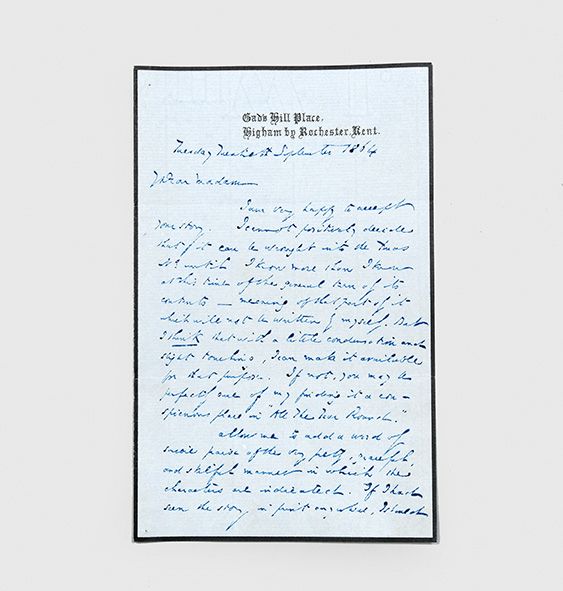 Gad's Hill Place,
Higham by Rochester, Kent.
Tuesday Twentieth September 1864
Dear Madam
I am very happy to accept
your story. I cannot positively decide
that it can be wrought into the Xmas
No. until I know more than I know
at this time of the general turn of its
contents — meaning of that part of it
which will not be written by myself. But
I think that with a little condensation and
slight touching, I can make it available
for that purpose. If not, you may be
perfectly sure of my finding it a con-
spicuous place in "All The Year Round."
Allow me to add a word of
sincere praise of the very pretty, graceful,
and skilful manner in which the
characters are indicated. If I had
seen the story, in print anywhere, I should